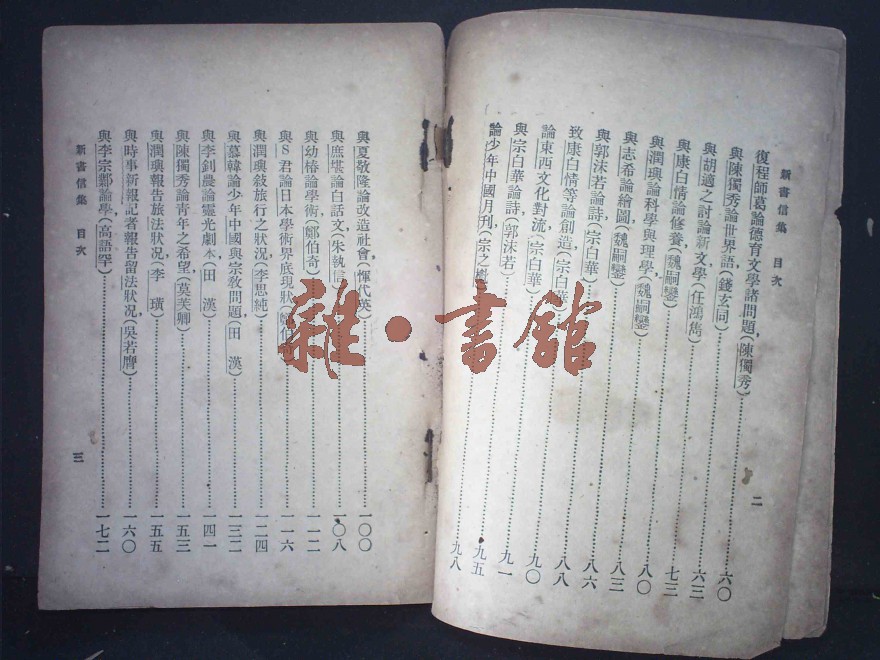 新書信集 目次
復程師葛論德育文學諸問題(陳獨秀)……六〇
與陳獨秀論世界語(錢玄同)……六三
與胡適之討論新文學(任鴻雋)……七三
與康白情論修養(魏嗣鑾)……八〇
與潤璵論科學與理學(魏嗣鑾)……八三
與志希論繪圖(魏嗣鑾)……八六
與郭沫若論詩(宗白華)……八八
致康白情等論創造(宗白華)……九〇
論東西文化對流(宗白華)……九一
與宗白華論詩(郭沫若)……九五
論少年中國月刊(宗之櫆)……九八
二
新書信集 目次
與夏敬隆論改造社會(惲代英)……一〇〇
與庶堪論白話文(朱執信)……一〇八
與幼椿論學術(鄭伯奇)……一一二
與S君論日本學術界底現狀(鄭伯奇)……一一六
與潤璵敍旅行之狀況(李思純)……一二四
與慕韓論少年中國與宗教問題(田漢)……一三二
與李劍農論靈光劇本(田漢)……一四一
與陳獨秀論青年之希望(莫芙卿)……一五三
與潤璵報告旅法狀況(李璜)……一五五
與時事新報記者報告留法狀況(吳若膺)……一六〇
與李宗鄴論學(高語罕)……一七二
三
雜·書館